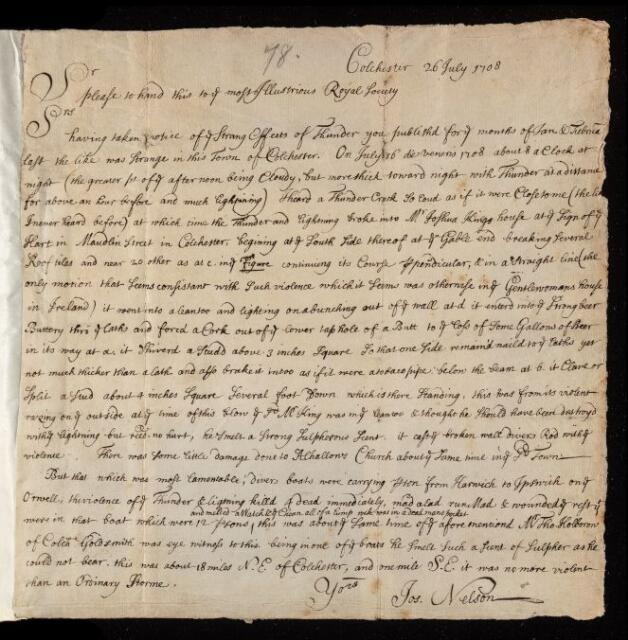 78.
Colchester 26 July 1708
Sr
please to hand this to ye most Illustrious Royal Society
Srs
having taken notice of ye Strang Effects of Thunder you publishd for ye months of Jan & Febria
last the like was strange in this Town of Colchester. On July 16 de veneris 1708 about 8 a Clock at
night (the greater pt of ye after noon being Cloudy, but more thick toward night with Thunder at a distance
for above an hour before and much Lightning) I heard a Thunder Crack so loud as if it were Close to me (the like
I never heard before) at which time the Thunder and Lightning broke into Mr Joshua Kings house at ye Sign of ye
Hart in Maudlin Street in Colchester, begining at ye South Side thereof at ye Gable end breaking Several
Roof tiles and near 20 other as at c. in ye Figure continuing its Course ppendicular, & in a straight line (the
only motion that seems consistant with such violence which it seems was otherwise in ye Gentlewomans house
in Ireland) it went into a leantoo and lighting on a bunching out of ye wall at d it enterd into ye Strong beer
Buttery thro ye Laths and forced a Cork out of ye lower tap hole of a Butt to ye loss of some Gallons of Beer
in its way at a. it Shiverd a Studd above 3 inches Square so that one Side remain'd naild to ye Laths yet
not much thicker than a lath and also brake it in too as if it were a tobaco pipe. below the beam at b. it Clave or
Split a Stud about 4 inches Square Several foot down which is there standing, this was from its violent
razing on ye outside at ye time of this blow ye sd Mr King was in ye & thought he should have been destroyd
with ye Lightning but recd no hurt, he smelt a strong Sulpherous Scent. it easely broken wall divers Rod with ye
violence. There was some little damage done to Alhallows Church about ye same time in ye sd Town
But that which was most lamentable, divers boats were carrying pson from Harwich to Ipswich on ye
Orwell, the violence of ye Thunder & ligtning killd 4 dead immediately, mad a lad run Mad & wounded ye rest yt
and melted a Watch & ye Chain all of a lump wch was in a dead mans pocket
were in that boat which were 12 psons, this was about ye same time of ye afore mentiond Mr Tho Holbrow
of Colchr Goldsmith was eye witness to this. being in one of ye boats he smelt such a scent of Sulpher as he
could not bear. this was about 18 miles N. E. of Colchester, and one mile S. E. it was no more violent
than an Ordinary Storme.
Yors
Jos. Nelson